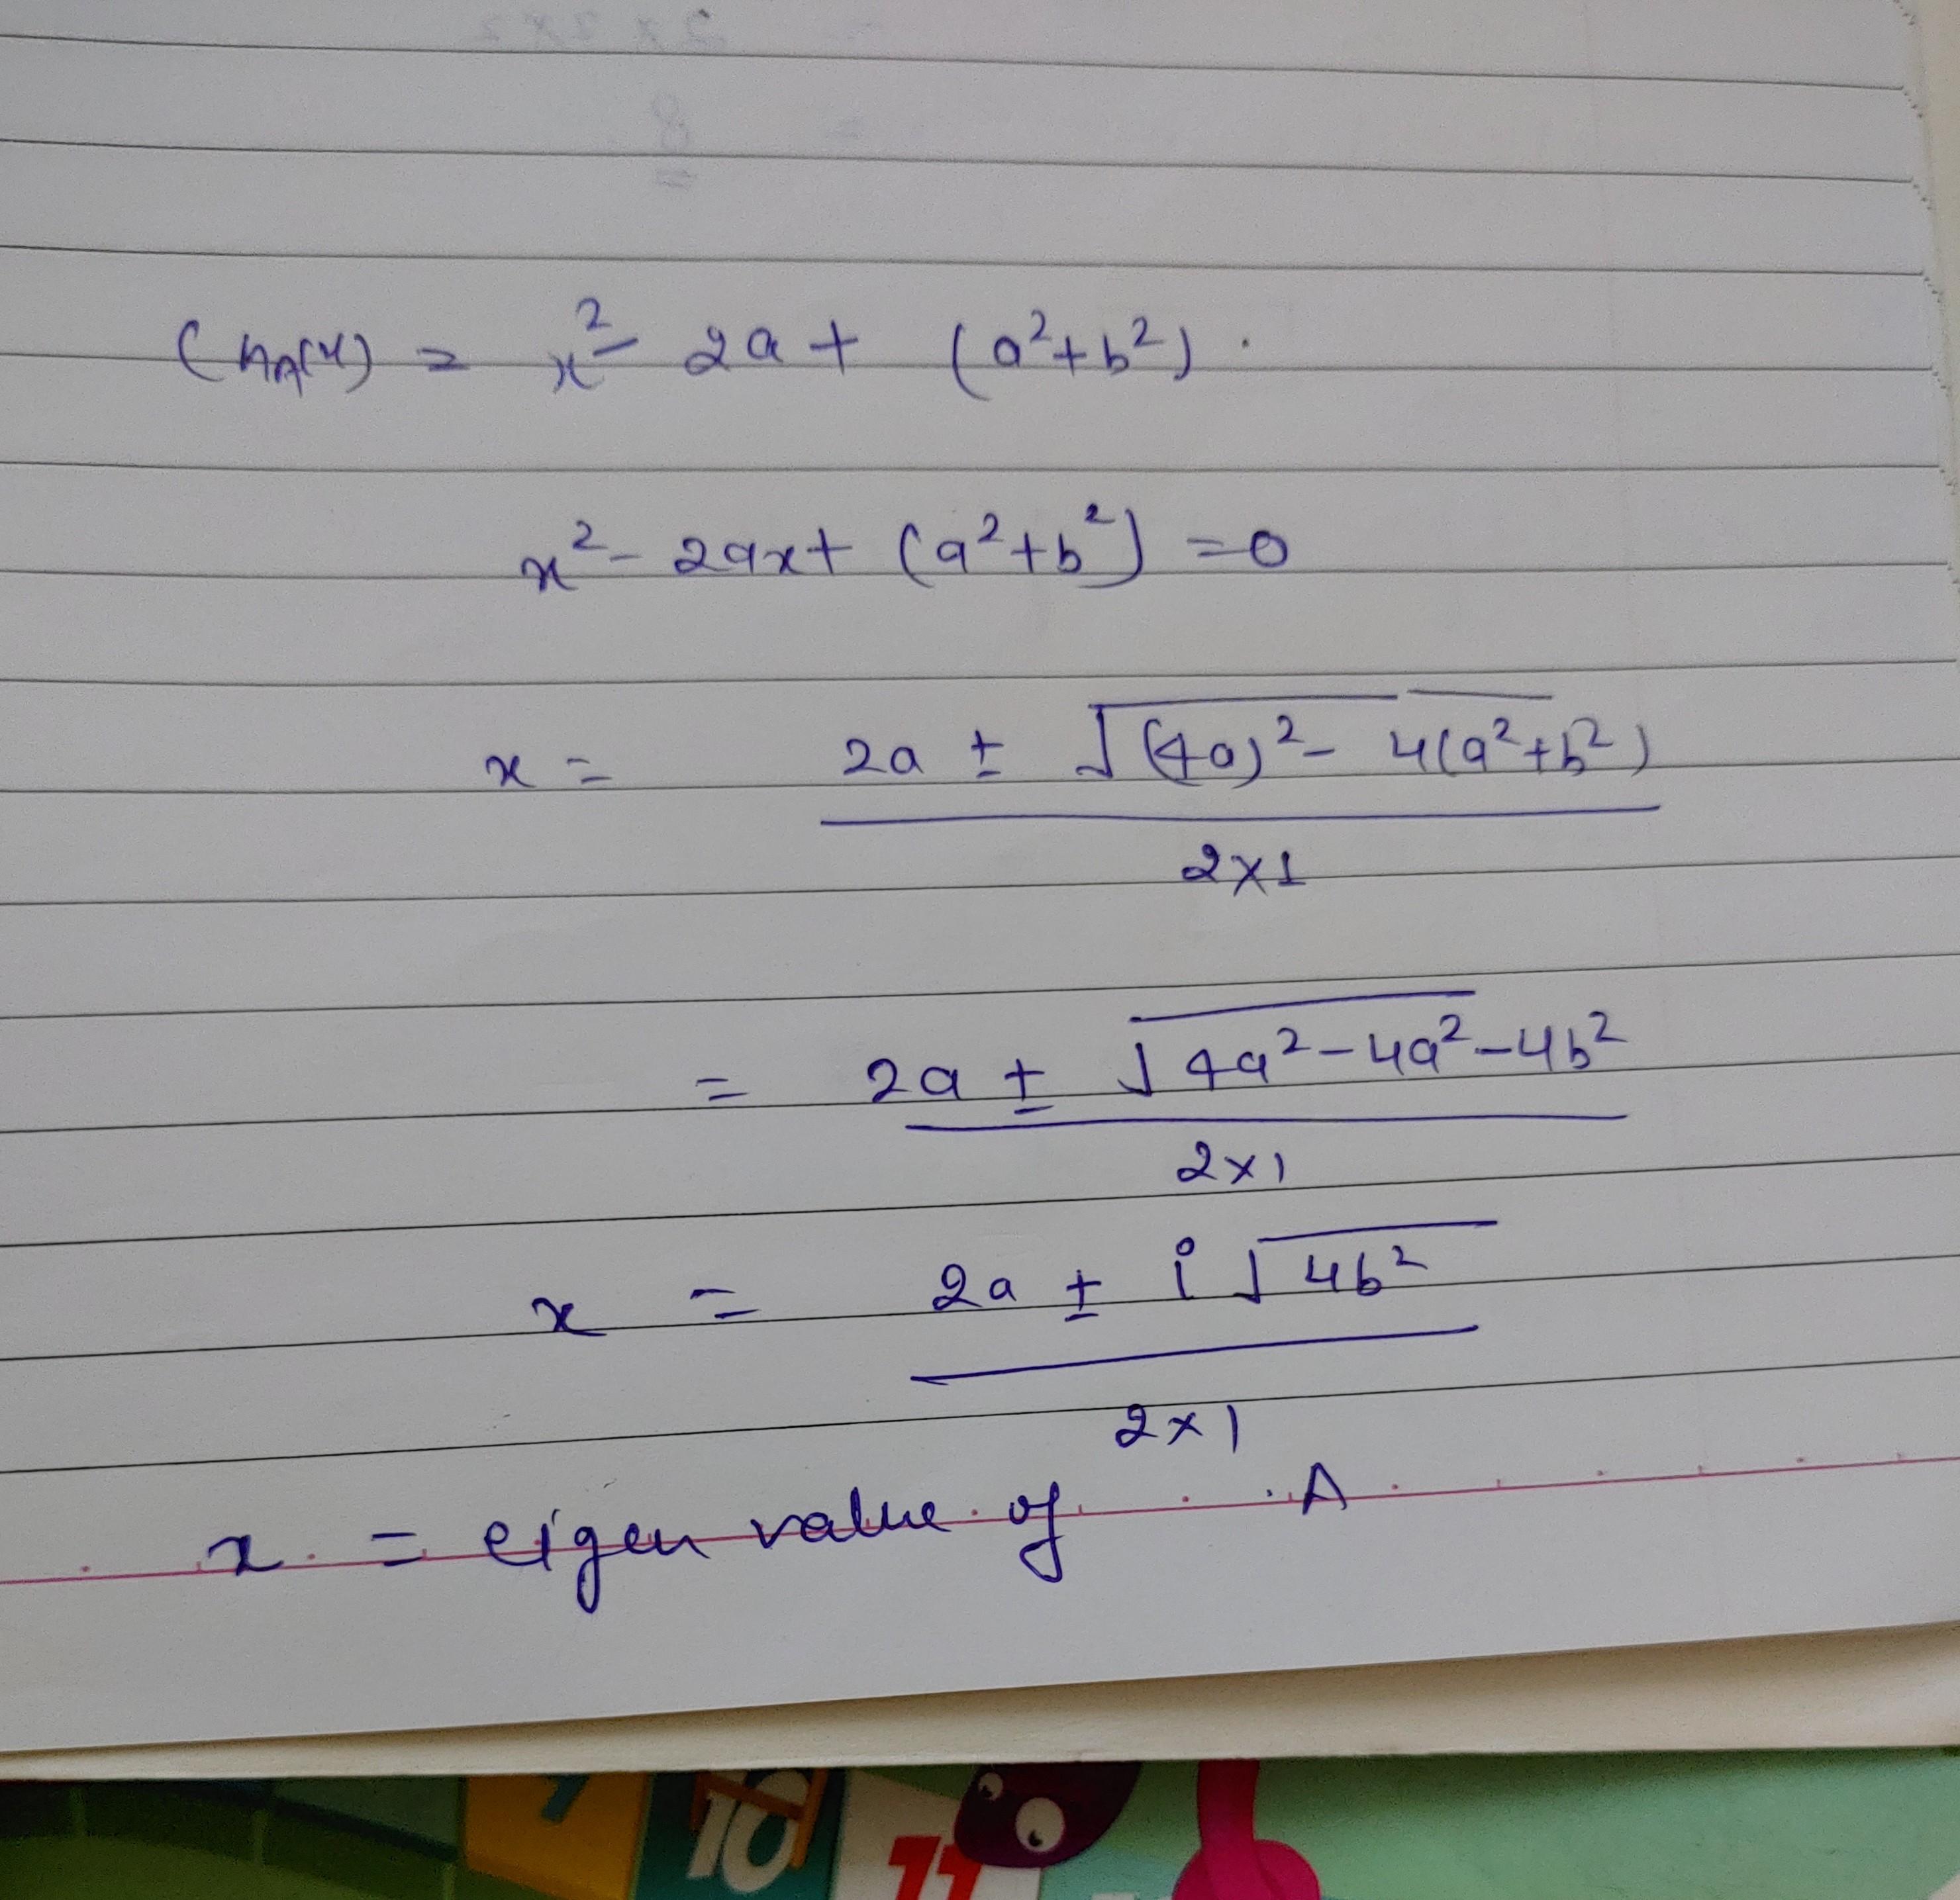 ChA(x) = x² - 2a + (a²+b²).
x² - 2ax + (a²+b²) = 0
x = 2a ± √(4a)² - 4(a²+b²)
2×1
= 2a ± √4a² - 4a² - 4b²
2×1
x = 2a ± i√4b²
2×1
x = eigen value of A
10
11